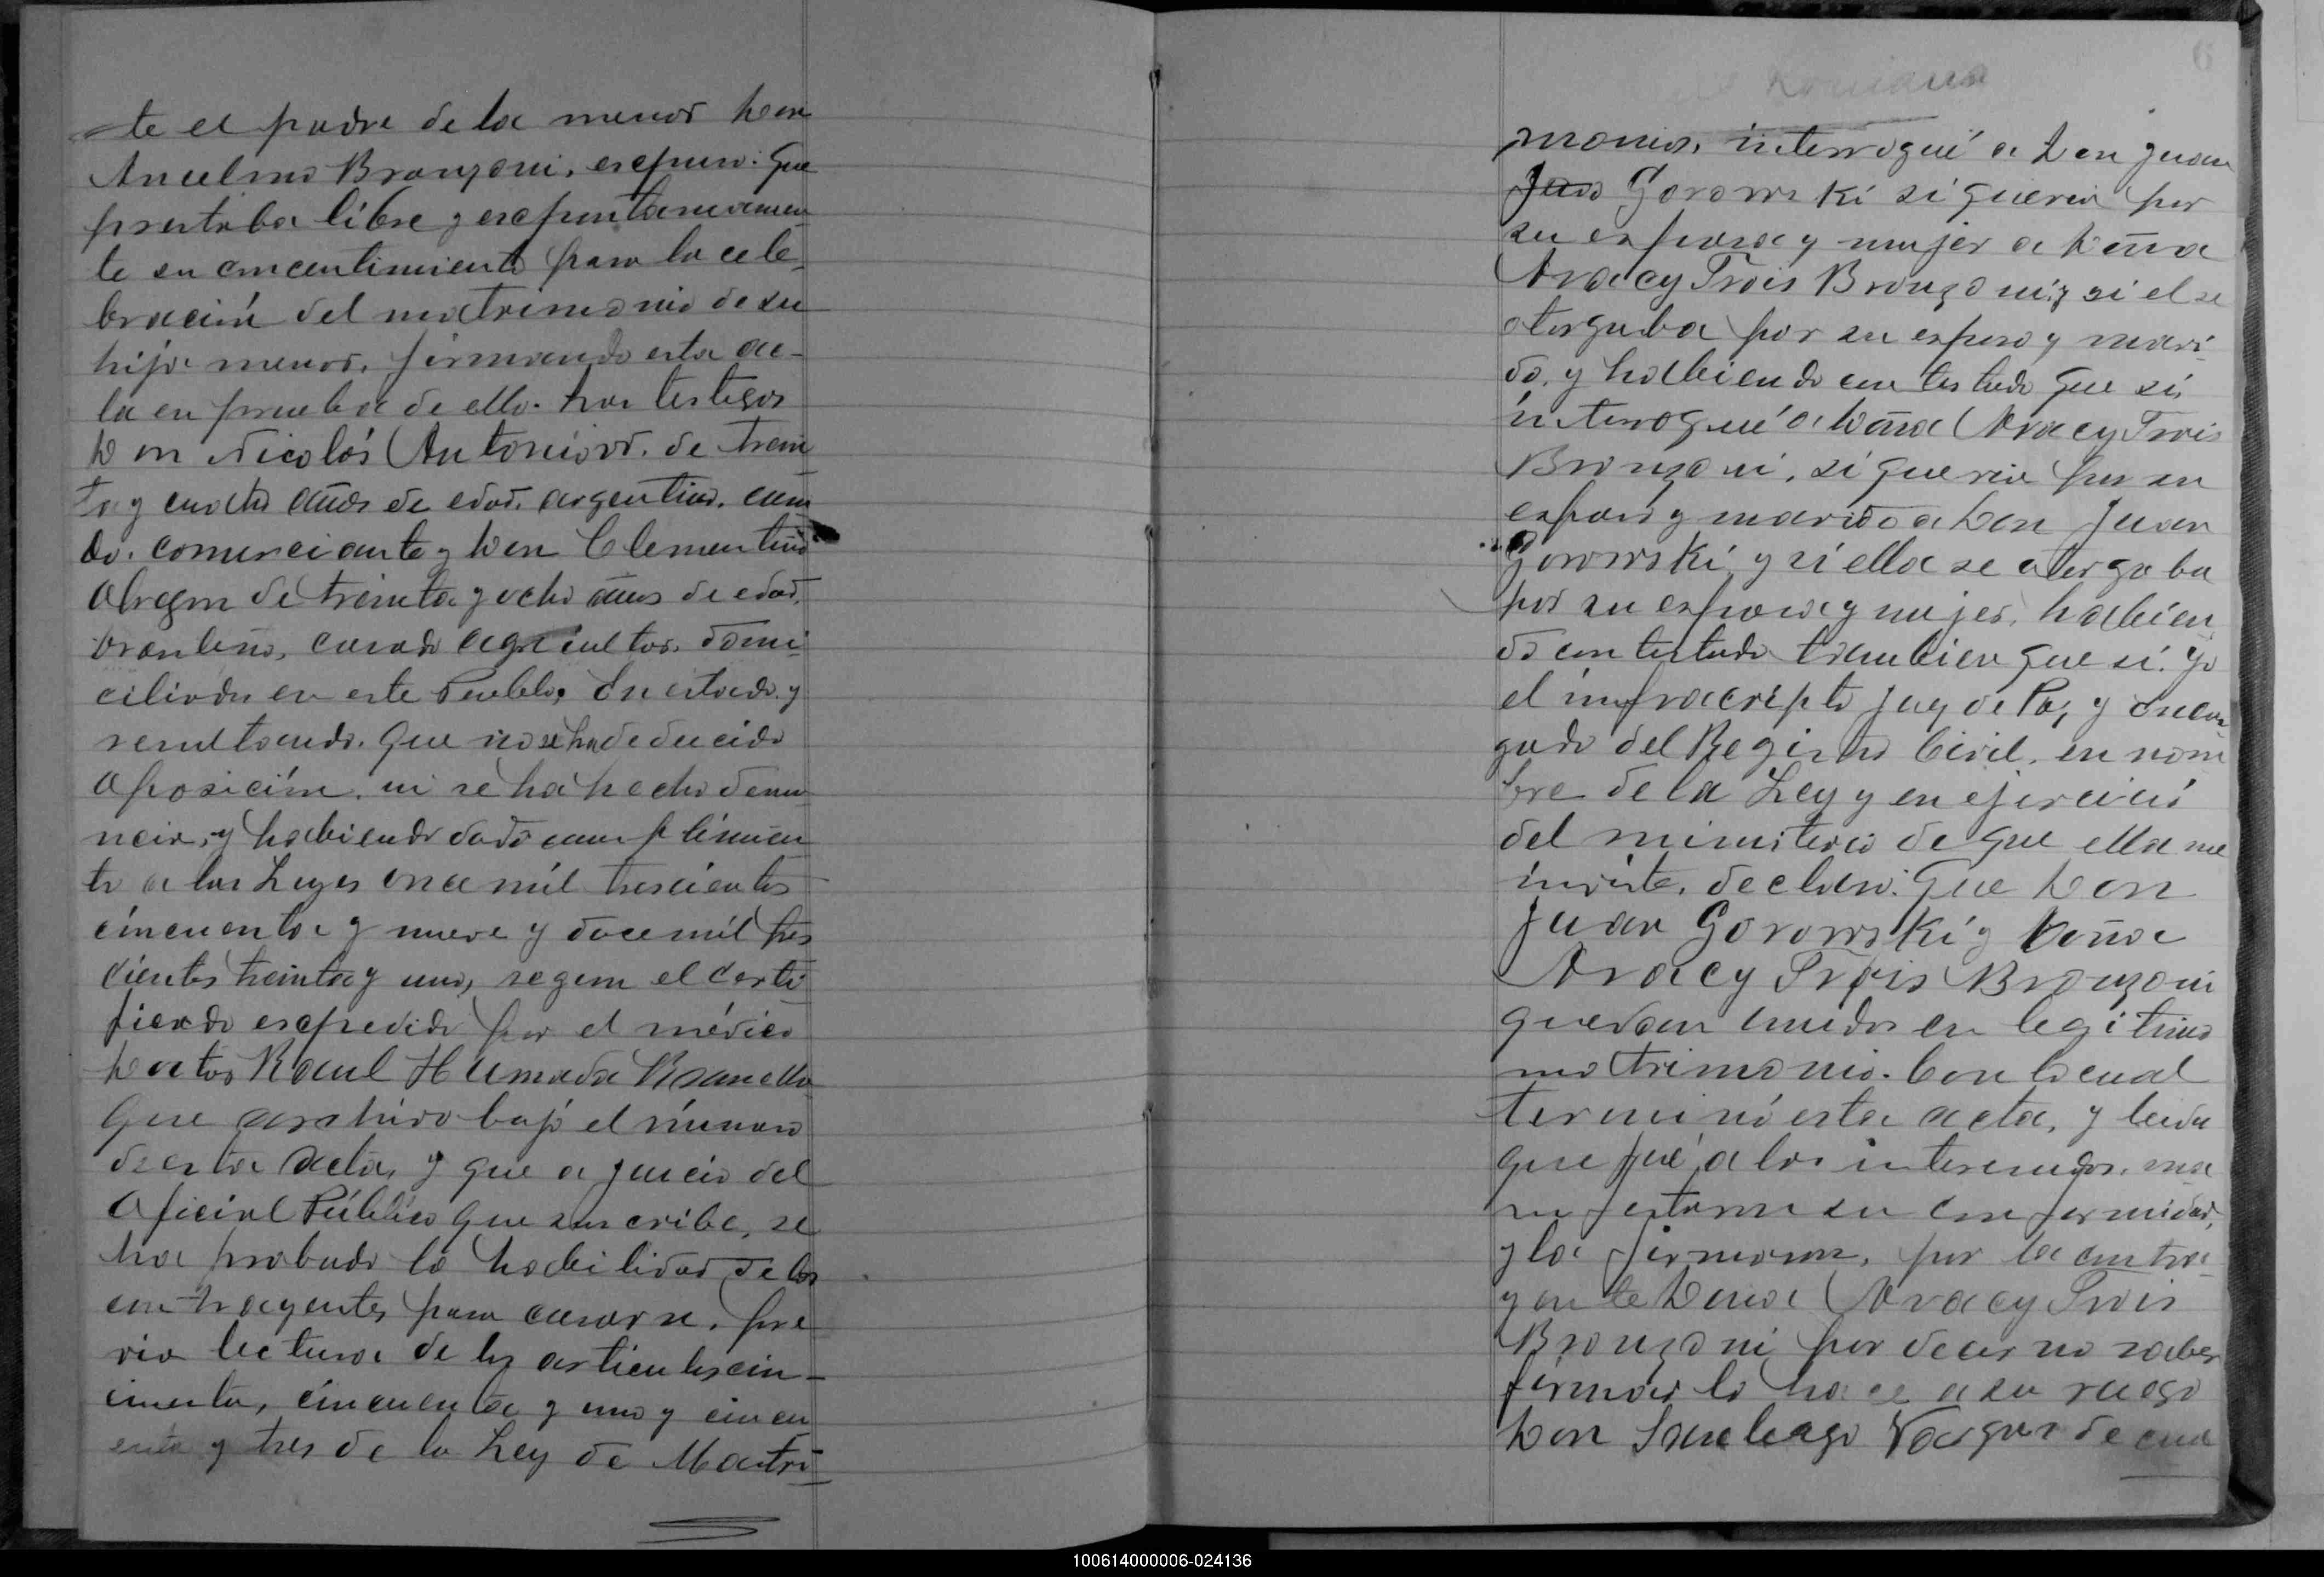 te el padre de la menor Don
Anselmo Bronzoni, expuso: que
prestaba libre y expontaneamen
te su concentimiento para la cele-
bración del matrimonio de su
hija menor, firmando esta ac-
ta en prueba de ello. Son testigos
Don Nicolás Antonio de trein
ta y cuatro años de edad, argentino, casa
do, comerciante y Don Clementino
Obregon de treinta y ocho años de edad,
brasileño, casado agricultor, domi
ciliados en este Pueblo, En estado y
resultando, que no se ha deducido
oposición, ni se ha hecho denun
ncia, y habiendo dado cumplimien
to a las Leyes once mil trescientos
cincuenta y nueve y doce mil tres
cientos treinta y uno, segun el certi
ficado expedido por el médico
Doctor Raul Humada
que archivo bajo el número
de esta acta, y que a juicio del
Oficial Público que suscribe, se
ha probado la habilidad de los
contrayentes para casarse, pre
via lectura de los articulos cin-
cuenta, cincuenta y uno y cincu
enta y tres de la Ley de Matri
monio, interrogué a Don Juan
Juan Gorowski si queria por
su esposa y mujer a Doña
Aracy Trois Bronzoni; y si el se
otorgaba por su esposo y mari
do, y habiendo contestado que si,
interrogué a Doña Aracy Trois
Bronzoni, si queria por su
esposo y marido a Don Juan
Gorowski y si ella se otorgaba
por su esposa y mujer, habien
do contestado tambien que si. Yo
el infracripto Juez de Paz y encar
gado del Registro Civil, en nom
bre de la Ley y en ejercicio
del ministerio de que ella me
inviste, declaro: Que Don
Juan Gorowski y Doña
Aracy Trois Bronzoni
quedan unidos en legitimo
matrimonio. Con lo cual
terminó esta acta, y leida
que fué a los interesados, ma
nifestaron su conformidad,
y la firmaron, por la contra
yente Doña Aracy Trois
Bronzoni por decir no saber
firmar lo hace a su ruego
Don Santiago Vargas de cua
100614000006-024136